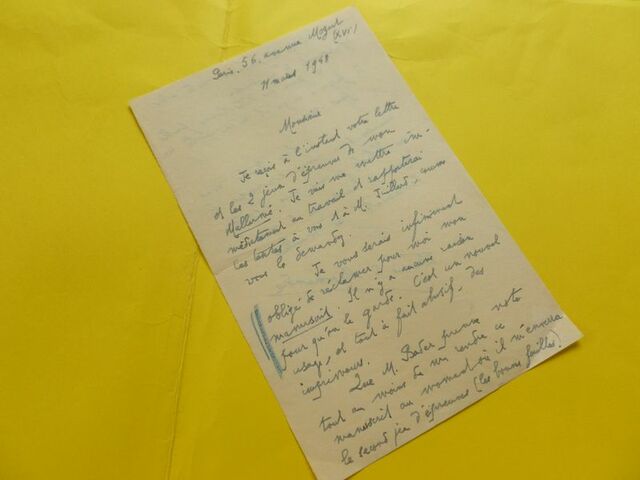 Paris. 56, avenue Mozart
(XVI)
11 mars 1948
Monsieur
Je reçois à l'instant votre lettre
et les 2 jeux d'épreuves de mon
Mallarmé. Je vais me mettre im-
médiatement au travail et rapporterai
les textes à vous et à M. comme
vous le demandez.
Je vous serais infiniment
obligé de réclamer pour moi mon
manuscrit. Il n'y a aucune raison
pour qu'on le garde. C'est un nouvel
usage, et tout à fait abusif, des
imprimeurs.
Que M. Bader prenne note
tout au moins de me rendre ce
manuscrit au moment où il m'enverra
le second jeu d'épreuves (les bonnes feuilles).